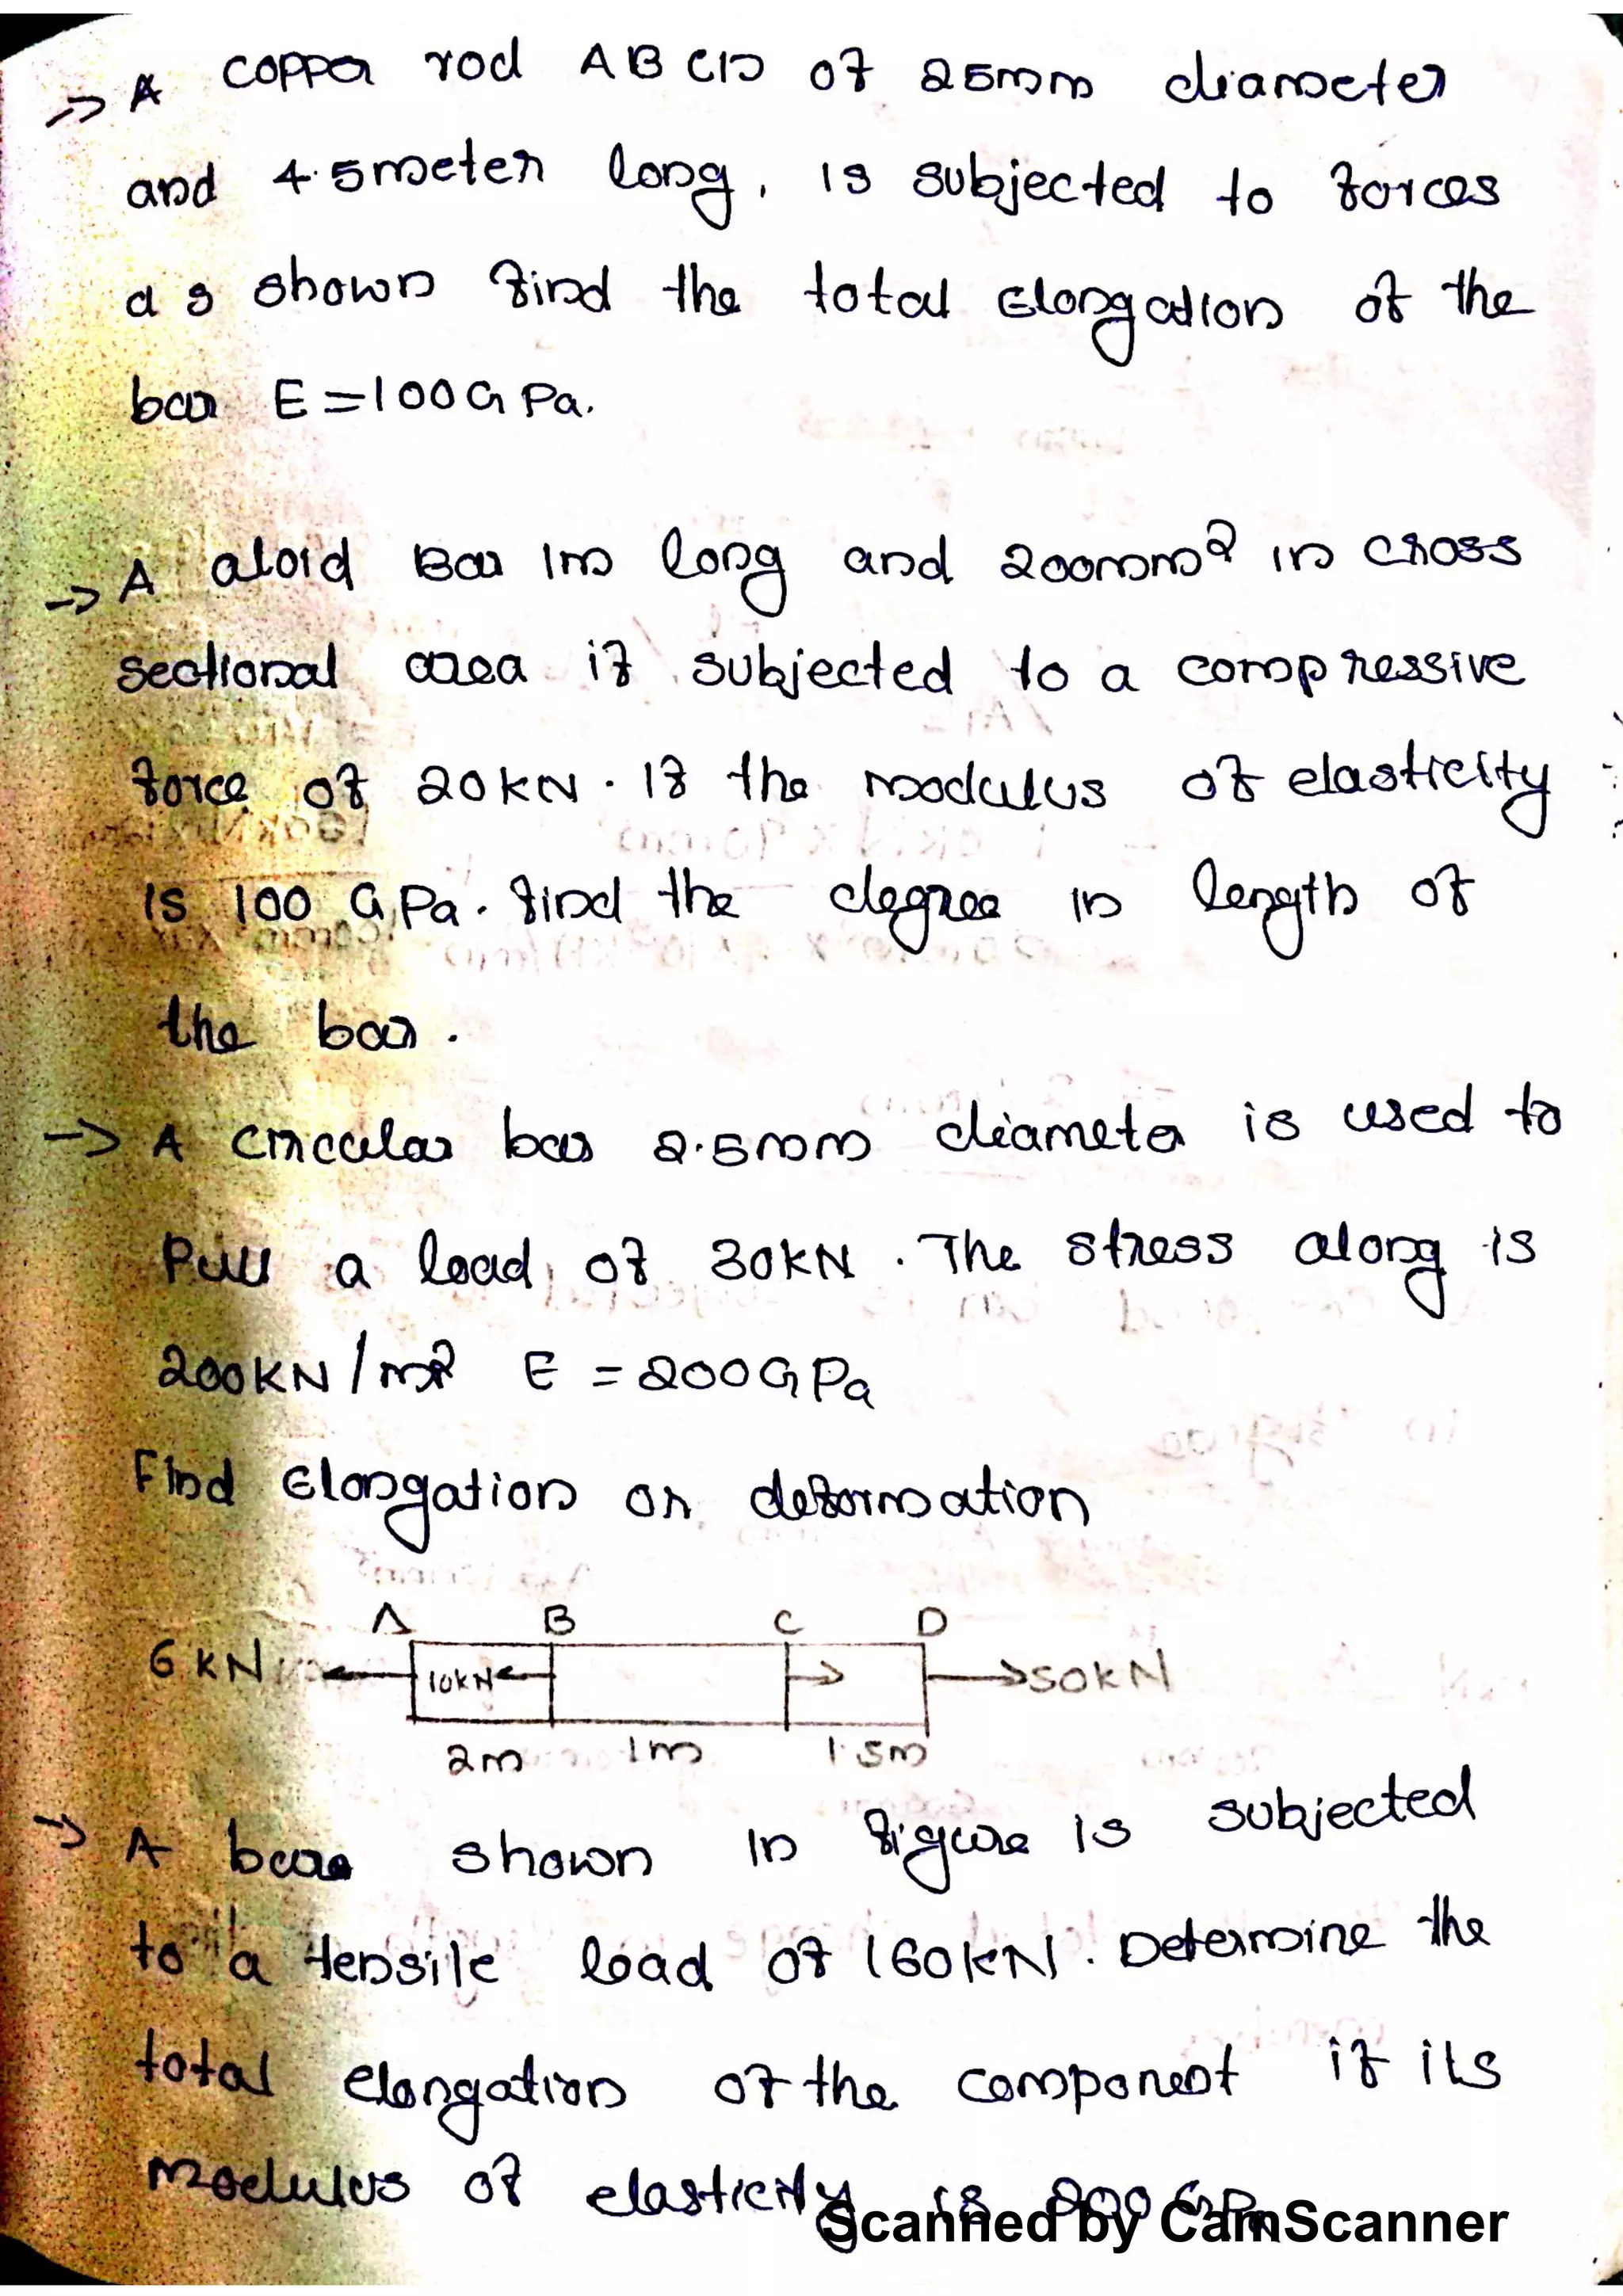 → A copper rod ABCD of 25mm diameter
and 4.5meter long, is subjected to forces
as shown find the total Elongation of the
bar E=100GPa.
→ A aloid Bar 1m long and 200mm² in cross
sectional area if subjected to a compressive
force of 20kN. If the modulus of elasticity
is 100 GPa. find the degree in length of
the bar.
→ A circular bar 2.5mm diameter is used to
Pull a load of 30kN. The stress along is
200KN/m² E = 200GPa
Find Elongation or deformation
A B C D
6 kN 10kN 50kN
2m 1m 1.5m
→ A bar shown in figure is subjected
to a tensile load of 160kN. Determine the
total elongation of the component if its
Modulus of elasticity is 200 GPa
Scanned by CamScanner